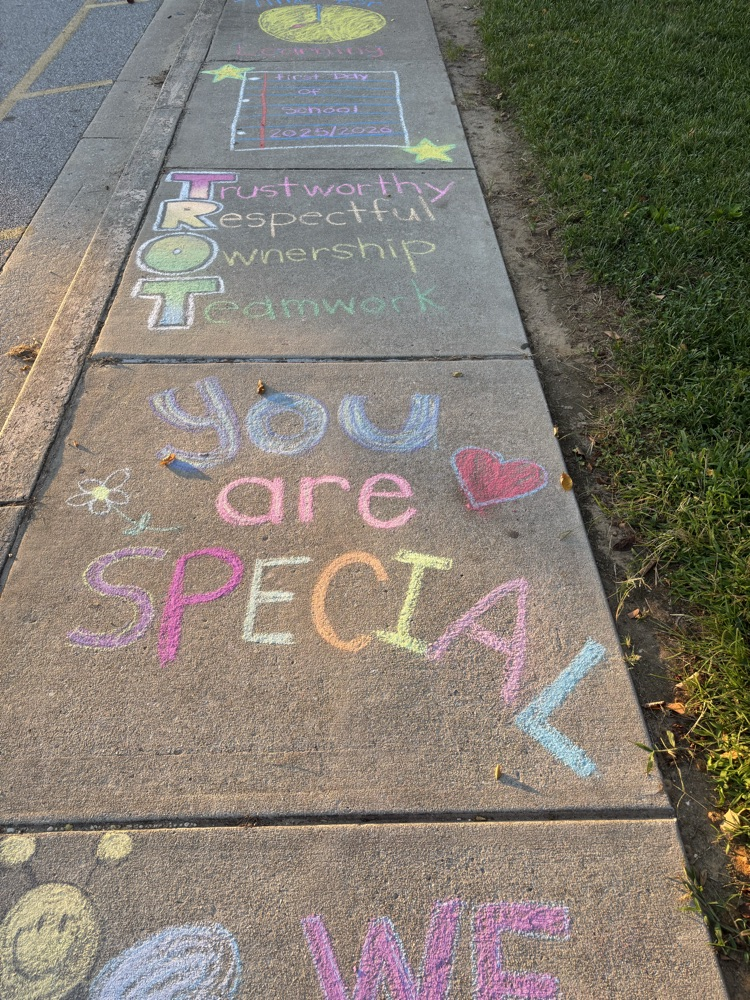 Learning
First Day
of
School
2025/2026
Trustworthy
Respectful
Ownership
Teamwork
you
are
SPECIAL
WE